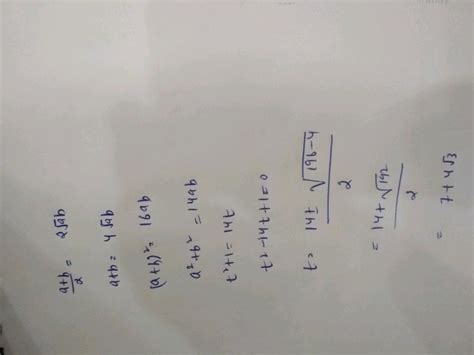 a+b/2 = 2√ab
a+b = 4√ab
(a+b)² = 16ab
a²+b² = 14ab
t²+1 = 14t
t²-14t+1=0
t = 14± √196-4 / 2
= 14+√192 / 2
= 7+4√3